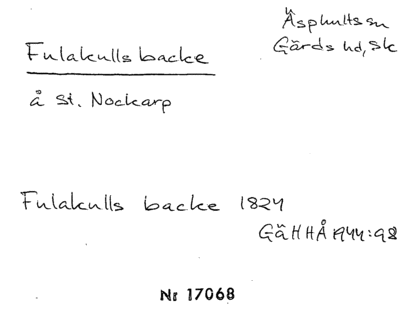 Äsphults sn
Gärds hd, Sk
Fulakulls backe
å St. Nockarp
Fulakulls backe 1824
GäHHÅ 1944:98
Nr 17068